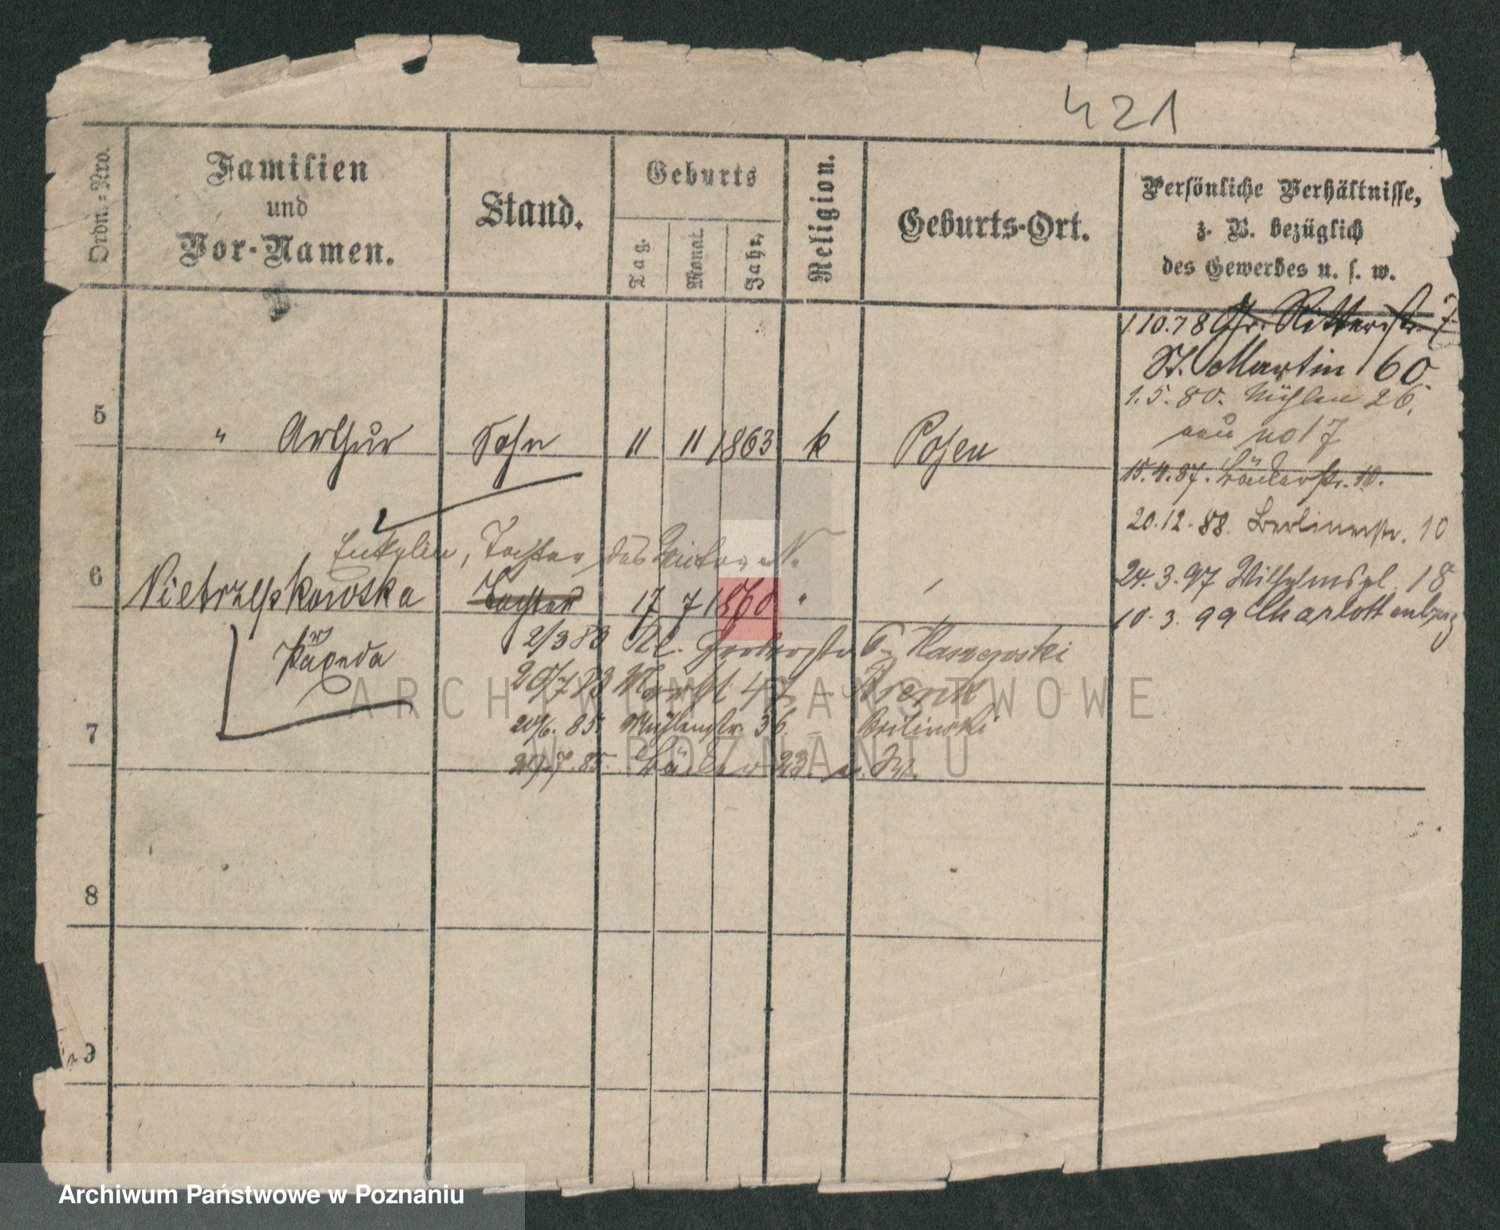 421
Ordn.-Nro.
Familien
und
Vor-Namen.
Stand.
Geburts
Tag.
Monat.
Jahr.
Religion.
Geburts-Ort.
Persönliche Verhältnisse,
z. B. bezüglich
des Gewerbes u. s. w.
1.10.78 Gr. Ritterstr. 7
St. Martin 60
1.5.80. Mühlen 26.
neu no 17
5 " Arthur Sohn 11 11 1863 k Posen
15.4.87. Bäckerstr. 10.
20.12.88. Berlinerstr. 10
Enkelin, Tochter des N.
24.3.97 Wilhelmspl. 18
6 Nietrzepkowska Tochter 17 7 1860 "
10.3.99 Charlottenburg
2/3 83 Kl. Gerberstr 6
20/7 83 Markt 47
7 20/6. 85. Mühlenstr. 36.
7. 85. 23
8
9
ARCHIWUM PAŃSTWOWE
W POZNANIU
Archiwum Państwowe w Poznaniu